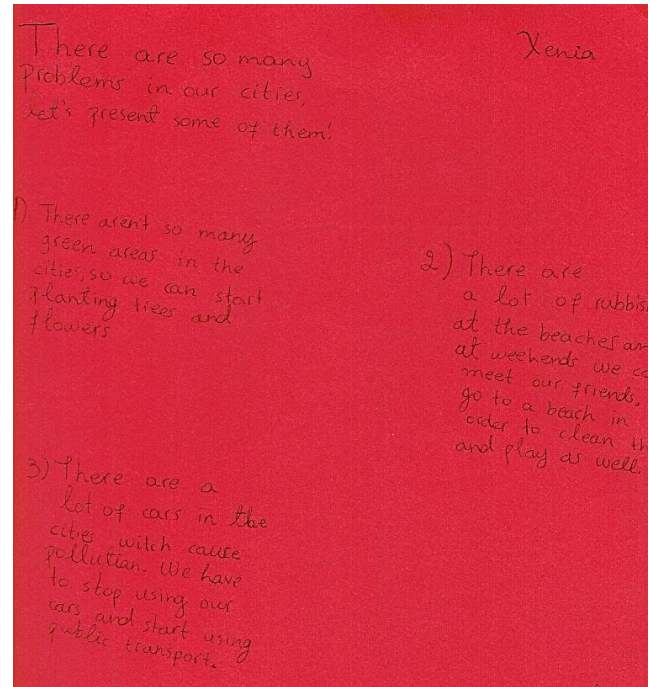 There are so many
problems in our cities,
let's present some of them!
Xenia
1) There aren't so many
green areas in the
cities, so we can start
planting trees and
flowers
2) There are
a lot of rubbis
at the beaches an
at weekends we ca
meet our friends,
go to a beach in
order to clean th
and play as well.
3) There are a
lot of cars in the
cities witch cause
pollutian. We have
to stop using our
cars and start using
public transport.